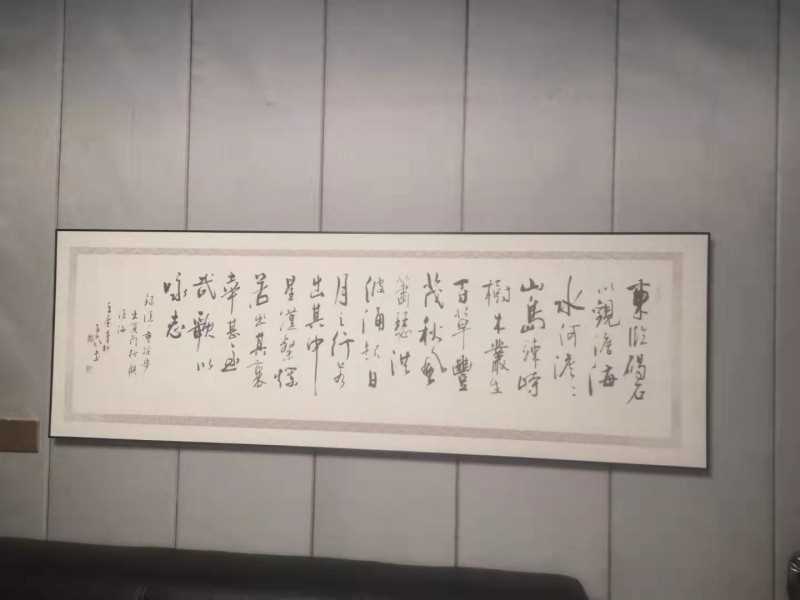 東臨碣石
以觀滄海
水何澹〻
山島竦峙
樹木叢生
百草豐
茂秋風
蕭瑟洪
波涌起日
月之行若
出其中
星漢燦爛
若出其裏
幸甚至
哉歌以
咏志
出夏門行觀
滄海